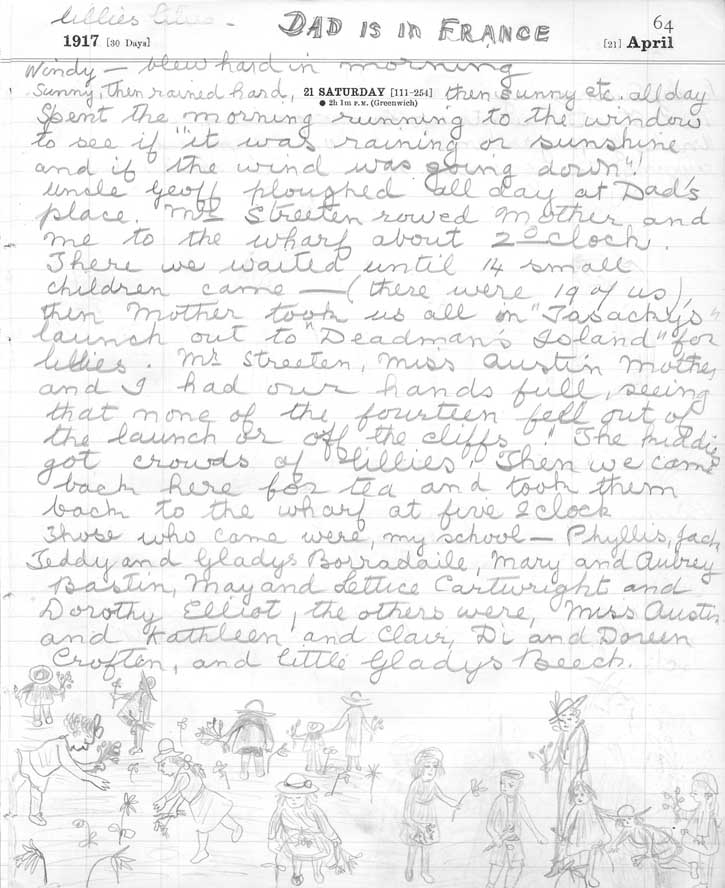 lillies lilies -
DAD IS IN FRANCE
64
1917 [30 Days] [21] April
Windy – blew hard in morning
Sunny, then rained hard, 21 SATURDAY [111-254] then sunny etc. all day
● 2h 1m P.M. (Greenwich)
Spent the morning running to the window
to see if "it was raining or sunshine
and if the wind was going down"!
Uncle Geoff ploughed all day at Dad's
place. Mr Streeten rowed Mother and
me to the wharf about 2 o'clock.
There we waited until 14 small
children came – (there were 19 of us),
then Mother took us all in "Tasacky's"
launch out to "Deadman's Island" for
lillies. Mr Streeten, Miss Austin Mother
and I had our hands full, seeing
that none of the fourteen fell out of
the launch or off the cliffs! The kiddies
got crowds of lillies. Then we came
back here for tea and took them
back to the wharf at five oclock
Those who came were, my school – Phyllis, Jack,
Teddy and Gladys Borradaile, Mary and Aubrey
Bastin, May and Lettice Cartwright and
Dorothy Elliot, the others were, Miss Austin
and Kathleen and Clair, Di and Doreen
Croften, and little Gladys Beech.